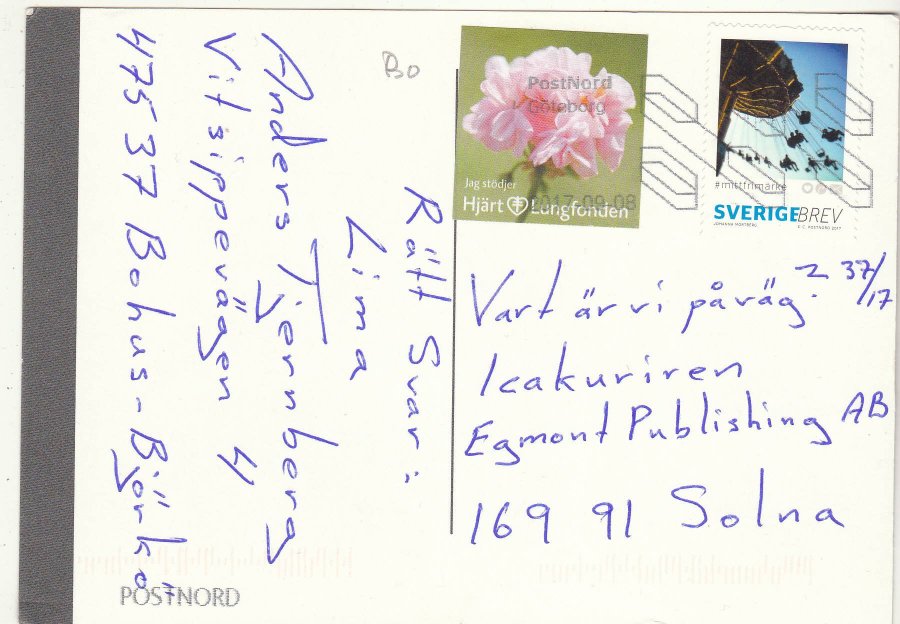 Bo
PostNord
Göteborg
2017-09-08
Jag stödjer
Hjärt Lungfonden
#mittfrimärke
SVERIGE BREV
JOHANNA MORTBERG
© POSTNORD 2017
Rätt Svar:
Lima
Anders Tjernberg
Vitsippevägen 4
475 37 Bohus-Björkö
Vart är vi på väg? 37/17
Icakuriren
Egmont Publishing AB
169 91 Solna
POSTNORD